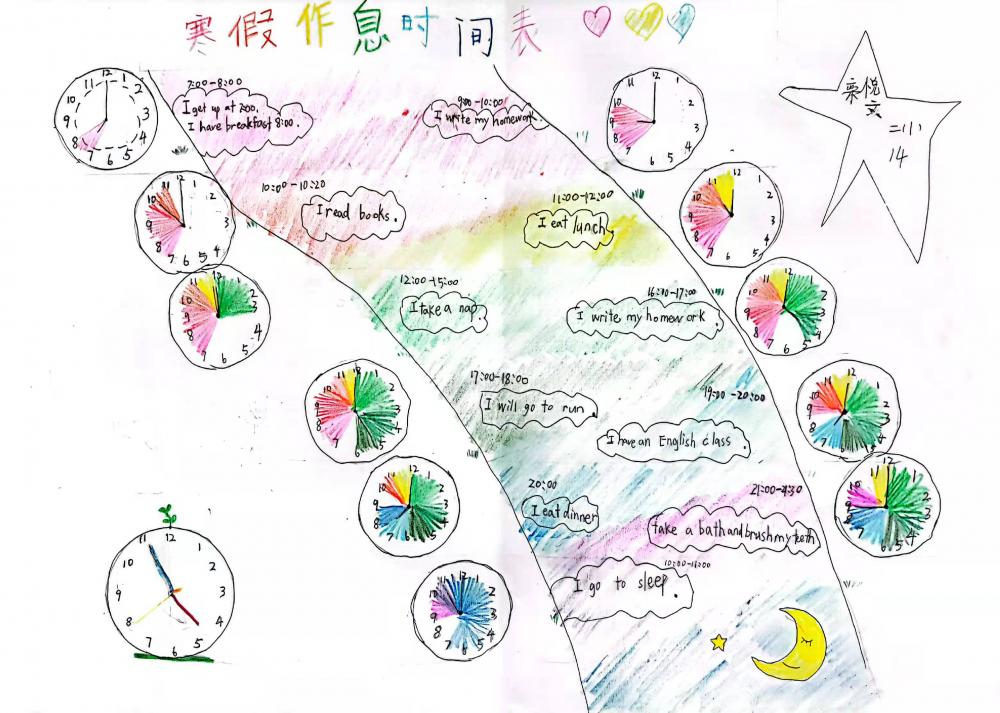 寒假作息时间表
7:00-8:00
I get up at 7:00,
I have breakfast 8:00.
9:00-10:00
I write my homework
10:00-10:20
I read books.
11:00-12:00
I eat lunch
12:00-15:00
I take a nap.
16:00-17:00
I write my homework.
17:00-18:00
I will go to run.
19:00-20:00
I have an English class
20:00
I eat dinner
21:00-21:30
take a bath and brush my teeth
10:00-11:00
I go to sleep.
悦
文
二(1)
14
11 12 1
10 2
9 3
8 4
7 6 5